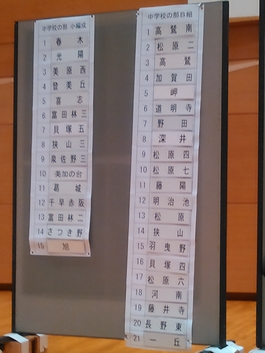 中学校の部 小編成
1 春木
2 光陽
3 美原西
4 登美丘
5 喜志
6 富田林三
7 貝塚五
8 狭山三
9 泉佐野三
10 美加の台
11 葛城
12 千早赤阪
13 富田林二
14 さつき野
15 旭
中学校の部 B組
1 高鷲南
2 松原二
3 高鷲
4 加賀田
5 岬
6 道明寺
7 野田
8 深井
9 松原四
10 松原七
11 藤陽
12 明治池
13 松原
14 狭山
15 羽曳野
16 貝塚四
17 松原六
18 河南
19 藤井寺
20 長野東
21 一丘